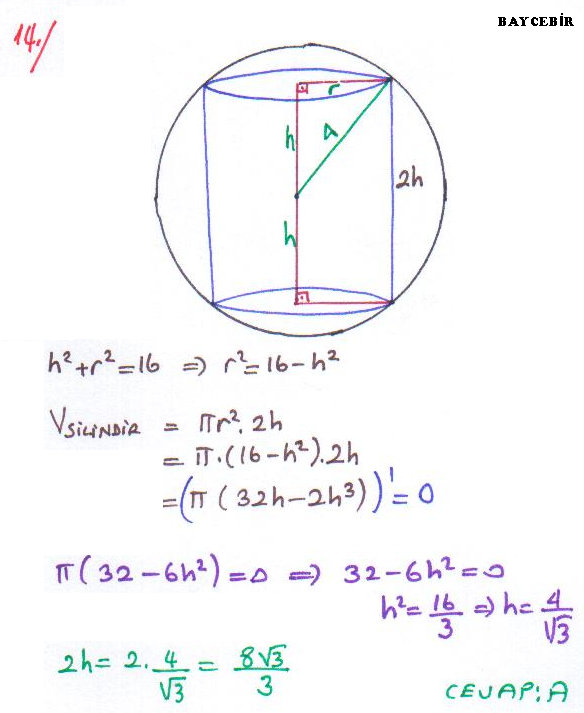 BAYCEBİR
14./
r
h
4
2h
h
h²+r²=16 ⇒ r²=16-h²
VSİLİNDİR = πr².2h
= π.(16-h²).2h
=(π(32h-2h³))'=0
π(32-6h²)=0 ⇒ 32-6h²=0
h²=16/3 ⇒ h=4/√3
2h= 2.4/√3 = 8√3/3
CEVAP:A